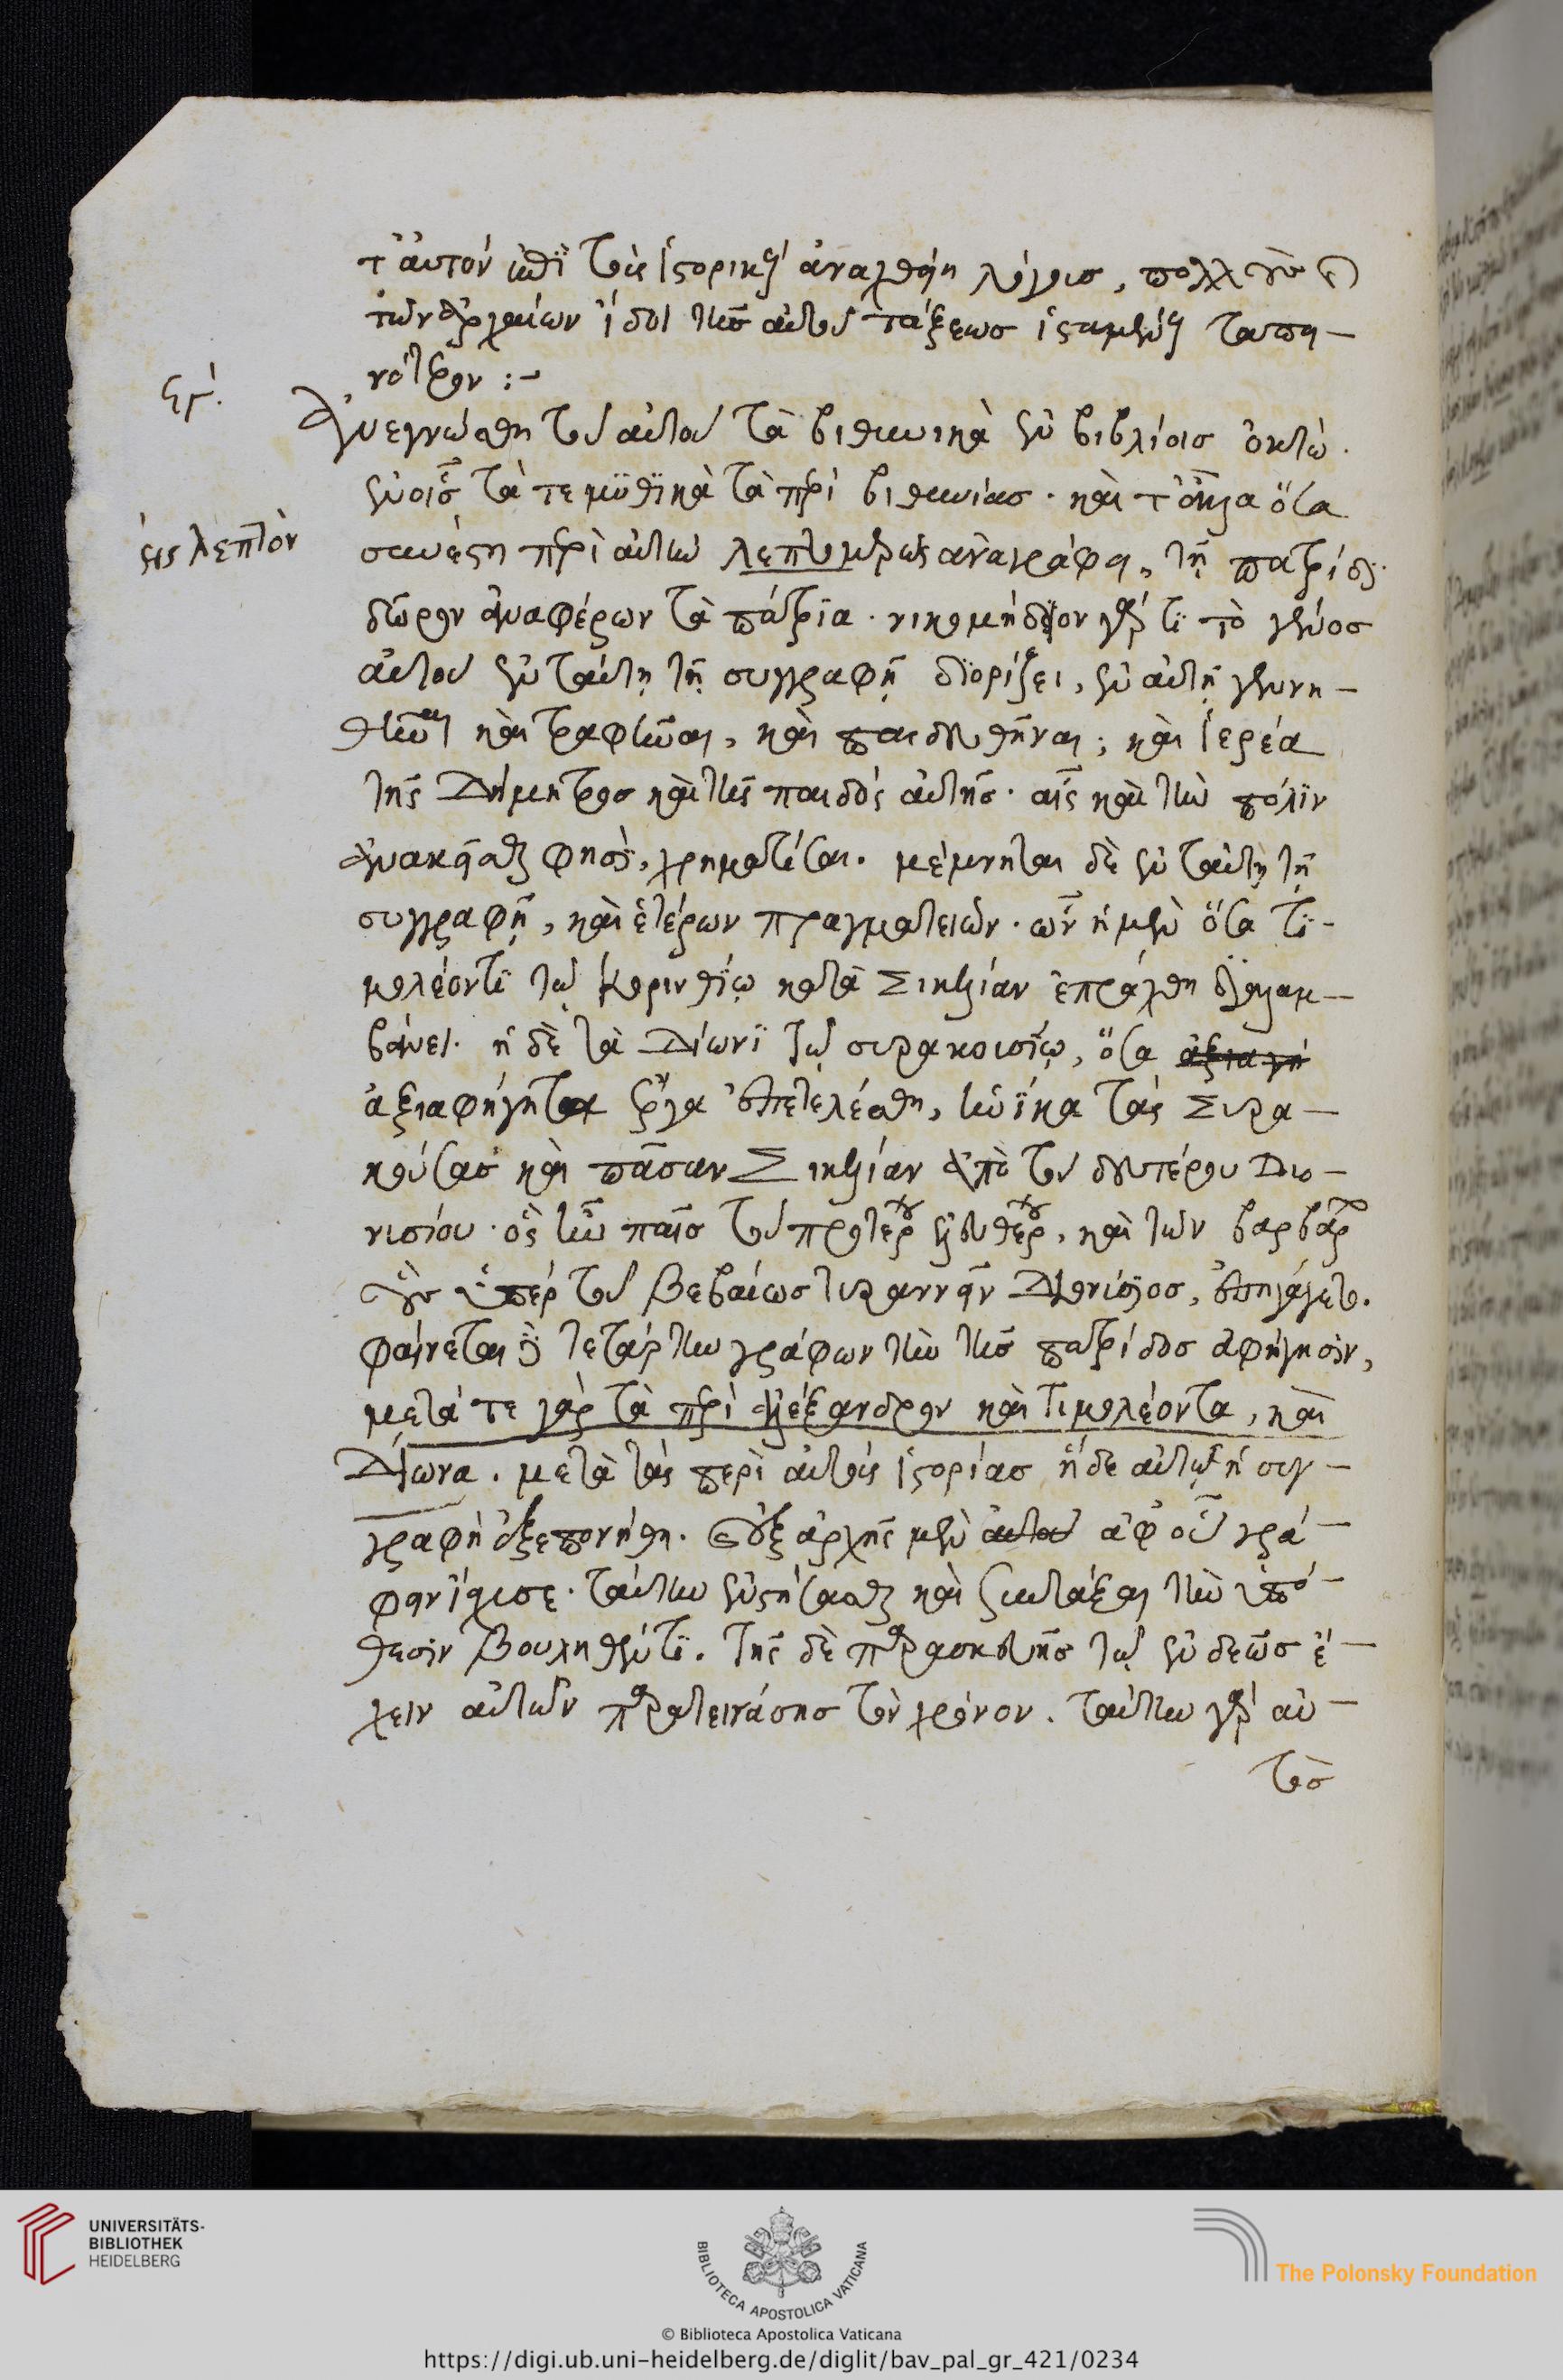 τ' αυτόν ἐπὶ τοῖς ἱστορικοῖς ἀναχθείη λόγοις, πολλοὺς
τῶν ἀρχαίων ἴδοι τῆς αὐτοῦ τάξεως ἱσταμένους ταπει-
νότερον :-
Ἀνεγνώσθη τοῦ αὐτοῦ τὰ βιθυνικὰ ἐν βιβλίοις ὀκτώ.
ἐν οἷς τά τε μυθικὰ τὰ περὶ βιθυνίας. καὶ τἆλλα ὅσα
εἰς λεπτὸν
συνέστη περὶ αὐτὴν λεπτομερῶς ἀναγράφει, τῇ πατρίδι
δῶρον ἀναφέρων τὰ πάτρια. νικομήδιον γάρ τι τὸ γένος
αὐτοῦ ἐν ταύτῃ τῇ συγγραφῇ διορίζει, ἐν αὐτῇ γεννη-
θῆναι καὶ τραφῆναι, καὶ παιδευθῆναι, καὶ ἱερέα
τῆς Δήμητρος καὶ τῆς παιδὸς αὐτῆς. αἷς καὶ τὴν πόλιν
ἀνακεῖσθαι φησὶ, χρηματίσαι. μέμνηται δὲ ἐν ταύτῃ τῇ
συγγραφῇ, καὶ ἑτέρων πραγματειῶν. ὧν ἡ μὲν ὅσα Τι-
μολέοντι τῷ κορινθίῳ κατὰ Σικελίαν ἐπράχθη διαλαμ-
βάνει. ἡ δὲ τὰ Δίωνι τῷ συρακουσίῳ, ὅσα ἀξιαγή
ἀξιαφήγητα ἔργα ἐπετελέσθη, ἡνίκα τὰς Συρα-
κούσας καὶ πᾶσαν Σικελίαν ἀπὸ τοῦ δευτέρου Διο-
νυσίου. ὃς ἦν παῖς τοῦ προτέρου ἠλευθέρου, καὶ τῶν βαρβάρων
οὓς ὑπὲρ τοῦ βεβαίως τυραννεῖν Διονύσιος, ἐπηγάγετο.
φαίνεται δὲ τετάρτην γράφων τὴν τῆς πατρίδος ἀφήγησιν,
μετά τε γὰρ τὰ περὶ ἀλέξανδρον καὶ τιμολέοντα, καὶ
Δίωνα. μετὰ τὰς περὶ αὐτοὺς ἱστορίας ἥδε αὐτῷ ἡ συγ-
γραφὴ ἐξεπονήθη. ἐξ ἀρχῆς μὲν αὐτοῦ ἀφ' οὗ γρά-
φειν ἴσχυσε. ταύτην ἐνστήσασθαι καὶ συντάξαι τὴν ὑπό-
θεσιν βουληθέντι. τῆς δὲ παρασκευῆς τῷ ἐνδεῶς ἔ-
χειν αὐτὸν παρατεινάσης τὸν χρόνον. ταύτην γὰρ αὐ-
τὸς
UNIVERSITÄTS-
BIBLIOTHEK
HEIDELBERG
BIBLIOTECA APOSTOLICA VATICANA
The Polonsky Foundation
© Biblioteca Apostolica Vaticana
https://digi.ub.uni-heidelberg.de/diglit/bav_pal_gr_421/0234